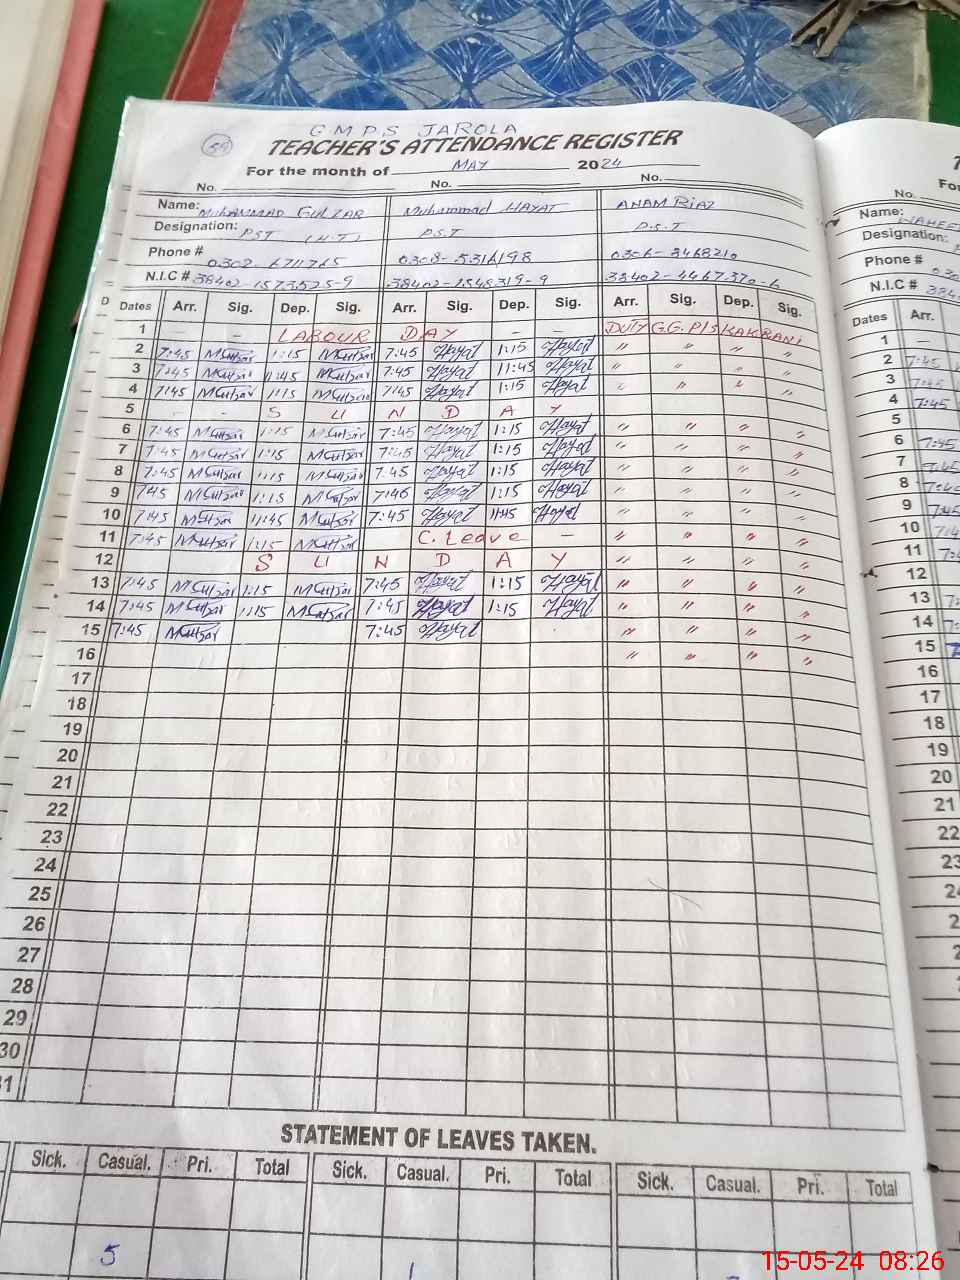 G.M.P.S JAROLA
59 TEACHER'S ATTENDANCE REGISTER
For the month of MAY 2024
No. No. No.
Name: MUHAMMAD GULZAR Muhammad HAYAT ANAM RIAZ
Designation: PST (H.T) P.S.T P.S.T
Phone # 0302-6711765 0308-5316198 0306-3468210
N.I.C # 38402-1573525-9 38402-1548319-9 38402-4467370-6
Dates Arr. Sig. Dep. Sig. Arr. Sig. Dep. Sig. Arr. Sig. Dep. Sig.
1 — — LABOUR DAY — — DUTY G.G.P/S KAKRANI
2 7:45 MGulzar 1:15 MGulzar 7:45 Hayat 1:15 Hayat " " " "
3 7:45 MGulzar 11:45 MGulzar 7:45 Hayat 11:45 Hayat " " " "
4 7:45 MGulzar 1:15 MGulzar 7:45 Hayat 1:15 Hayat " " " "
5 - - S U N D A Y
6 7:45 MGulzar 1:15 MGulzar 7:45 Hayat 1:15 Hayat " " " "
7 7:45 MGulzar 1:15 MGulzar 7:45 Hayat 1:15 Hayat " " " "
8 7:45 MGulzar 1:15 MGulzar 7:45 Hayat 1:15 Hayat " " " "
9 7:45 MGulzar 1:15 MGulzar 7:46 Hayat 1:15 Hayat " " " "
10 7:45 MGulzar 11:45 MGulzar 7:45 Hayat 11:45 Hayat " " " "
11 7:45 MGulzar 1:15 MGulzar C. Leave — " " " "
12 S U N D A Y " " " "
13 7:45 MGulzar 1:15 MGulzar 7:45 Hayat 1:15 Hayat " " " "
14 7:45 MGulzar 1:15 MGulzar 7:45 Hayat 1:15 Hayat " " " "
15 7:45 MGulzar 7:45 Hayat " " " "
16 " " " "
17
18
19
20
21
22
23
24
25
26
27
28
29
30
31
STATEMENT OF LEAVES TAKEN.
Sick. Casual. Pri. Total Sick. Casual. Pri. Total Sick. Casual. Pri. Total
5 1
No.
Name:
Designation:
Phone #
N.I.C # 384
Dates Arr.
1 —
2 7:45
3 7:45
4 7:45
5
6 7:45
7 7:45
8 7:45
9 7:45
10
11
12
13
14
15
16
17
18
19
20
21
22
23
15-05-24 08:26